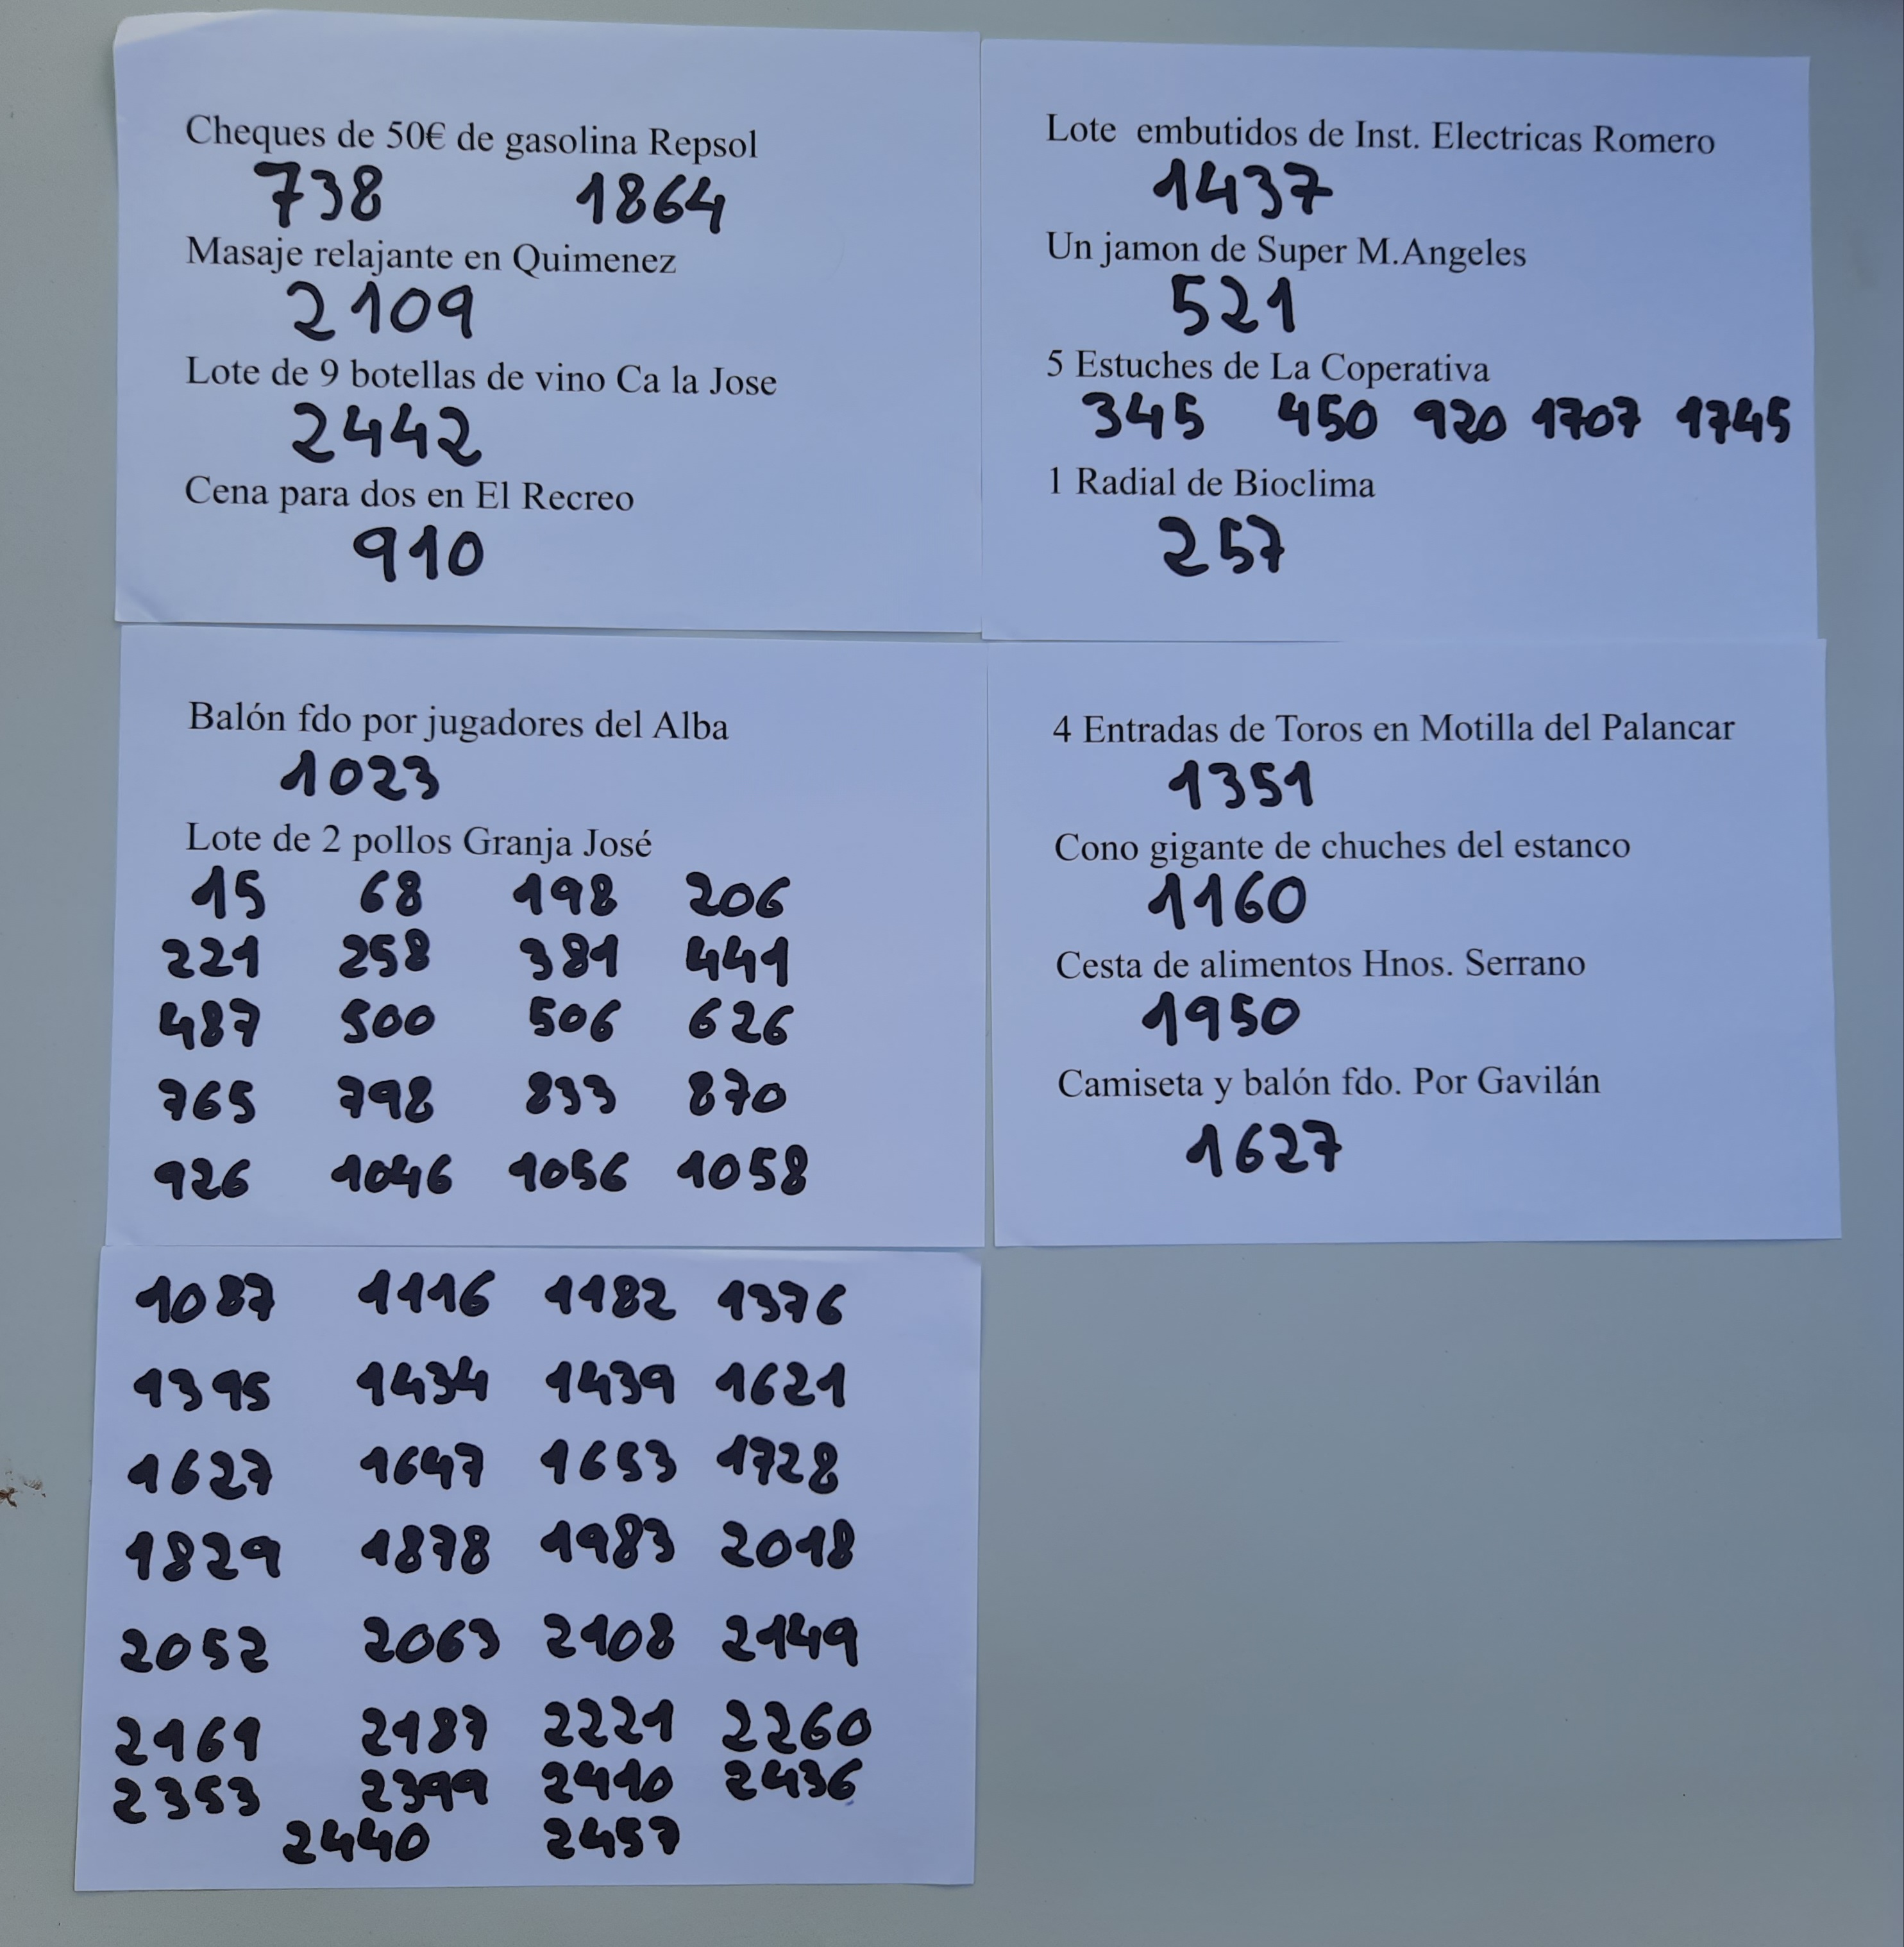 Cheques de 50€ de gasolina Repsol
738 1864
Masaje relajante en Quimenez
2109
Lote de 9 botellas de vino Ca la Jose
2442
Cena para dos en El Recreo
910
Lote embutidos de Inst. Electricas Romero
1437
Un jamon de Super M.Angeles
521
5 Estuches de La Coperativa
345 450 920 1707 1745
1 Radial de Bioclima
257
Balón fdo por jugadores del Alba
1023
Lote de 2 pollos Granja José
15 68 198 206
221 258 381 441
487 500 506 626
765 798 833 870
926 1046 1056 1058
4 Entradas de Toros en Motilla del Palancar
1351
Cono gigante de chuches del estanco
1160
Cesta de alimentos Hnos. Serrano
1950
Camiseta y balón fdo. Por Gavilán
1627
1087 1116 1182 1376
1395 1434 1439 1621
1627 1647 1653 1728
1829 1878 1983 2018
2052 2063 2108 2149
2161 2187 2221 2260
2353 2399 2410 2436
2440 2457